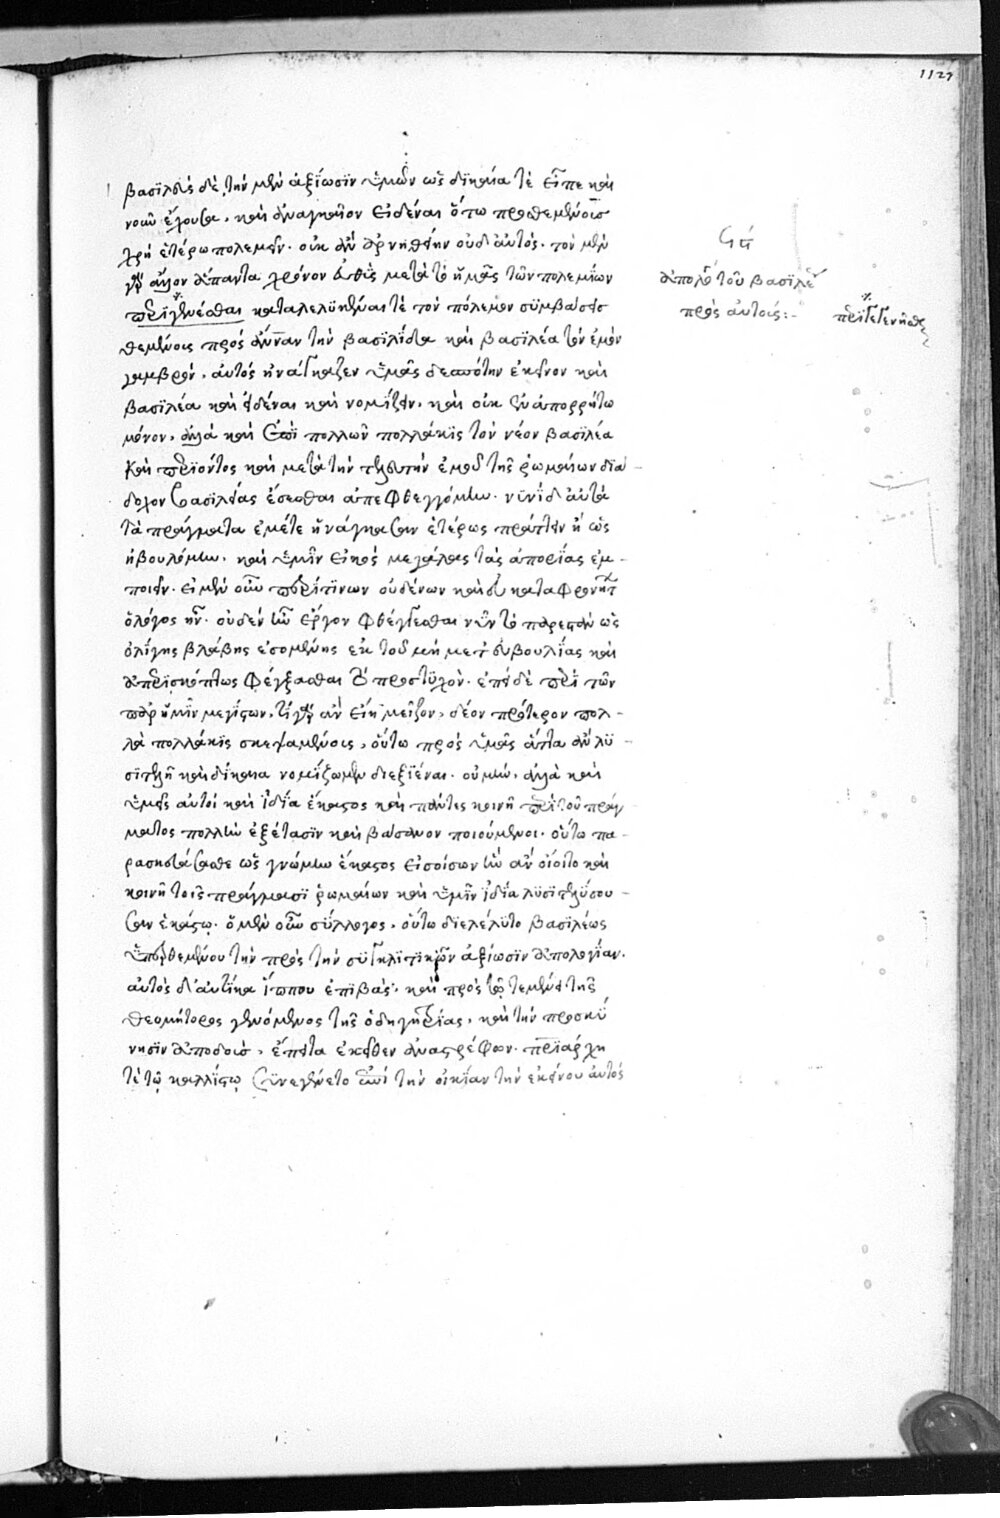 1127
βασιλεὺς δὲ, τὴν μὲν ἀξίωσϊν ὑμῶν ὡς δϊκαία τὲ εἶπε καὶ
νοῦν ἔχουσα, καὶ ἀναγκαῖον εἰδέναι ὅτω προθεμένους
χρὴ ἑτέρω πολεμεῖν. οὐκ ἂν ἀρνηθείην οὐδ' αὐτός. τὸν μὲν
γὰρ ἅπαντα χρόνον μετὰ τὸ ἡμᾶς τῶν πολεμίων
περϊγενέσθαι καταλελυκέναι τὲ τὸν πόλεμον συμβάσεσ
θεμένοις πρὸς ἄνναν τὴν βασιλίδα καὶ βασιλέα τὸν ἐμὸν
γαμβρόν, αὐτός ἠνάγκαζεν ὑμᾶς δεσπότην ἐκεῖνον καὶ
βασιλέα καὶ εἰδέναι καὶ νομίζειν, καὶ οὐκ ἐν ἀπορρήτω
μόνον, ἀλλὰ καὶ ἐπὶ πολλῶν πολλάκϊς τὸν νέον βασιλέα
καὶ περϊόντος καὶ μετὰ τὴν τελευτὴν ἐμοῦ τῆς ῥωμαίων δϊά-
δοχον βασιλείας ἔσεσθαι ἀπεφθεγγόμην. νυνὶ δ' αὐτὰ
τὰ πράγματα ἐμέ τε ἠνάγκασαν ἑτέρως πράττειν ἢ ὡς
ἠβουλόμην. καὶ ὑμῖν εἰκὸς μεγάλας τὰς ἀπορίας ἐμ-
ποιεῖν. εἰ μὲν οὖν περί τϊνων οὐδένων καὶ εὐκαταφρονήτ
ὁ λόγος ἦν. οὐδὲν ἦν ἔργον φθέγγεσθαι νῦν τὸ παρεστὸν ὡς
ὀλίγης βλάβης ἐσομένης ἐκ τοῦ μὴ μετ' εὐβουλίας καὶ
ἀπερϊσκέπτως φθέγξασθαι τὸ προστυχὸν. ἐπεὶ δὲ περὶ τῶν
παρ' ἡμῖν μεγίστων, τί γὰρ ἂν εἴη μεῖζον, δέον πρότερον πολ-
λὰ πολλάκϊς σκεψαμένοις, οὕτω πρὸς ὑμᾶς ἅττα ἂν λυ-
σϊτελῆ καὶ δίκαια νομίζωμεν διεξιέναι. οὐ μὴν, ἀλλὰ καὶ
ὑμεῖς αὐτοὶ καὶ ἰδία ἕκαστος καὶ πάντες κοινῆ περὶ τοῦ πράγ-
ματος πολλὴν ἐξέτασϊν καὶ βάσανον ποιούμενοι. οὕτω πα-
ρασκευάσασθε ὡς γνώμην ἕκαστος εἰσοίσων ἣν ἂν οἴοιτο καὶ
κοινῆ τοῖς πράγμασϊ ῥωμαίων καὶ ὑμῖν ἰδία λυσϊτελήσου-
σαν ἑκάστω. ὁ μὲν οὖν σύλλογος, οὕτω διελέλυτο βασιλέως
ὑπερθεμένου τὴν πρὸς τὴν συγκλϊτϊκῶν ἀξίωσϊν ἀπολογίαν.
αὐτὸς δ' αὐτίκα ἵππου ἐπϊβάς, καὶ πρὸς τῶ τεμένει τῆς
θεομήτορος γενόμενος τῆς ὁδηγητρίας, καὶ τὴν προσκύ
νησϊν ἀποδοὺσ, ἔπειτα ἐκεῖθεν ἀναστρέφων. πατριάρχη
τὲ τῷ καλλίστῳ συνεγένετο ἐπὶ τὴν οἰκίαν τὴν ἐκείνου αὐτός
ἀπολο τοῦ βασϊλέ
πρὸς αὐτούς:-
περϊγεγενῆσθ